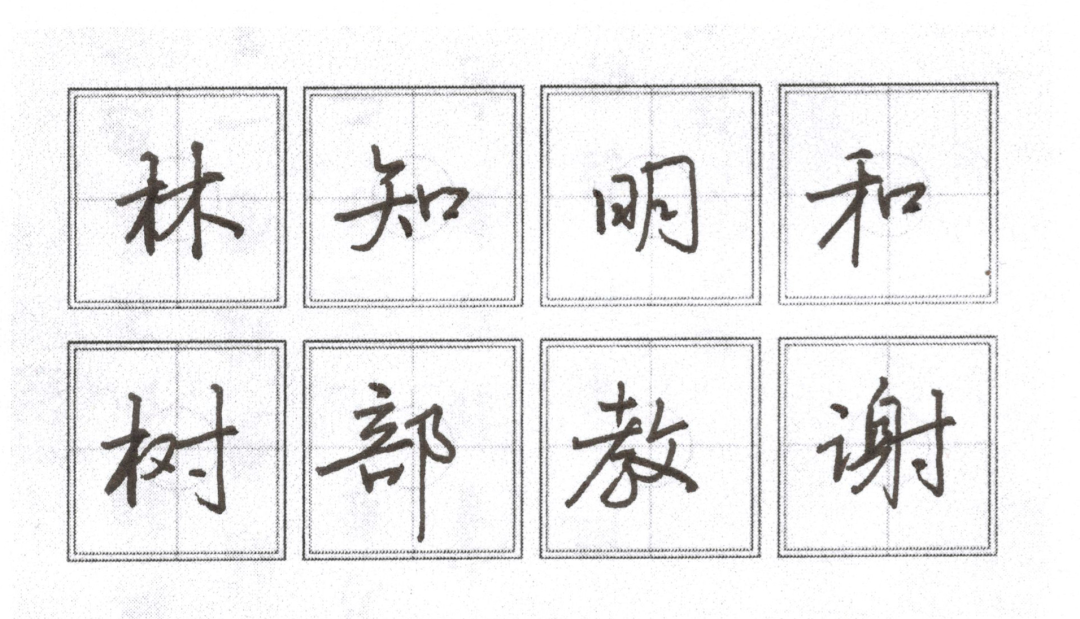 林知明和
树部教谢